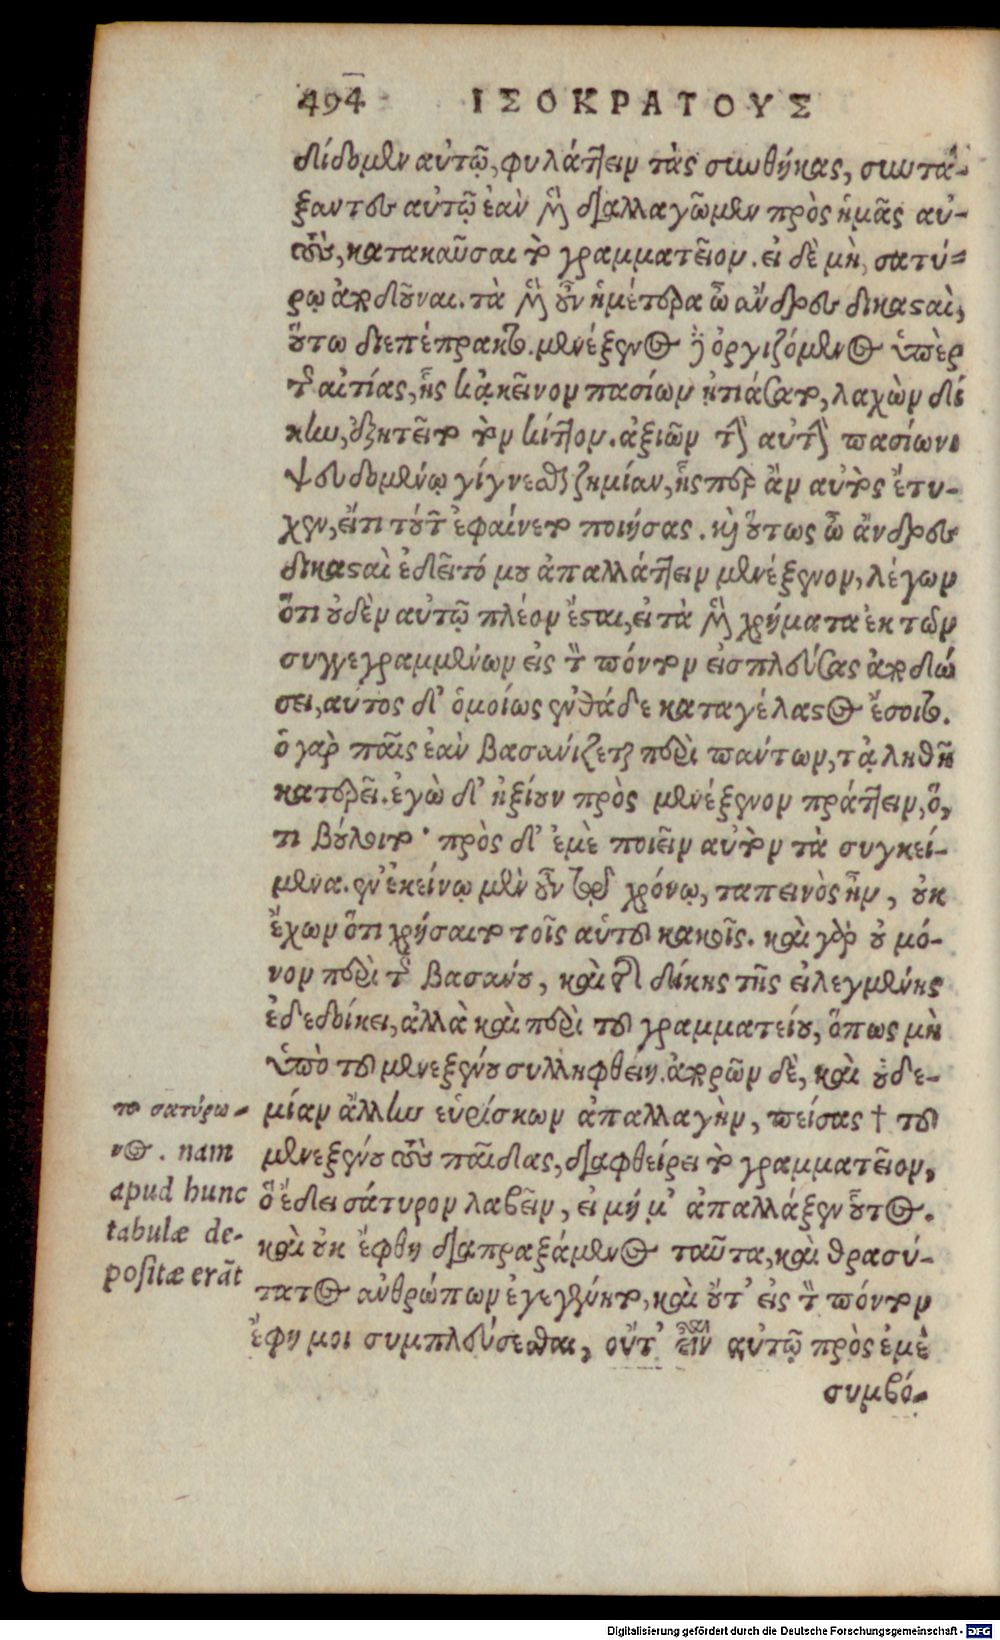 494 ΙΣΟΚΡΑΤΟΥΣ
δίδομεν αὐτῷ, φυλάττειν τὰς συνθήκας, συντά-
ξαντες αὐτῷ ἐὰν μὲν διαλλαγῶμεν πρὸς ἡμᾶς αὐ-
τοὺς, κατακαῦσαι τὸ γραμματεῖον. εἰ δὲ μὴ, σατύ-
ρῳ ἀποδοῦναι. τὰ μὲν οὖν ἡμέτερα ὦ ἄνδρες δικασταὶ,
οὕτω διεπέπρακτο. μενέξενος δὲ ὀργιζόμενος ὑπὲρ
τῆς αἰτίας, ἧς κᾀκεῖνον πασίων ᾐτιάσατο, λαχὼν δί
κην, ἐξῃτεῖτο τὸν κίττον. ἀξιῶν τὴν αὐτὴν πασίωνι
ψευδομένῳ γίγνεσθαι ζημίαν, ἧσπερ ἂν αὐτὸς ἔτυ-
χεν, εἴ τι τοῦτ' ἐφαίνετο ποιήσας. καὶ οὕτως ὦ ἄνδρες
δικασταὶ ἐδεῖτό μου ἀπαλλάττειν μενέξενον, λέγων
ὅτι οὐδὲν αὐτῷ πλέον ἔσται, εἰ τὰ μὲν χρήματα ἐκ τῶν
συγγεγραμμένων εἰς τὸν πόντον εἰσπλεύσας ἀποδώ
σει, αὐτὸς δ' ὁμοίως ἐνθάδε καταγέλαστος ἔσοιτο.
ὁ γὰρ παῖς ἐὰν βασανίζεται περὶ πάντων, τᾀληθῆ
κατερεῖ. ἐγὼ δ' ἠξίουν πρὸς μενέξενον πράττειν, ὅ,
τι βούλοιτο· πρὸς δ' ἐμὲ ποιεῖν αὐτὸν τὰ συγκεί-
μενα. ἐν ἐκείνῳ μὲν οὖν τῷ χρόνῳ, ταπεινὸς ἦν, οὐκ
ἔχων ὅτι χρήσαιτο τοῖς αὑτοῦ κακοῖς. καὶ γὰρ οὐ μό-
νον περὶ τῆς βασάνου, καὶ τῆς δίκης τῆς εἰλεγμένης
ἐδεδοίκει, ἀλλὰ καὶ περὶ τοῦ γραμματείου, ὅπως μὴ
ὑπὸ τοῦ μενεξένου συλληφθείη. ἀπορῶν δὲ, καὶ οὐδε-
μίαν ἄλλην εὑρίσκων ἀπαλλαγὴν, πείσας † τοῦ
μενεξένου τοὺς παῖδας, διαφθείρει τὸ γραμματεῖον,
ὃ ἔδει σάτυρον λαβεῖν, εἰ μή μ' ἀπαλλάξεν οὗτος.
καὶ οὐκ ἔφθη διαπραξάμενος ταῦτα, καὶ θρασύ-
τατος ἀνθρώπων ἐγεγένητο, καὶ οὔτ' εἰς τὸν πόντον
ἔφη μοι συμπλεύσεσθαι, οὔτ' εἶναι αὐτῷ πρὸς ἐμὲ
συμβό-
το σατύρω-
νος. nam
apud hunc
tabulæ de-
positæ erāt
Digitalisierung gefördert durch die Deutsche Forschungsgemeinschaft - DFG